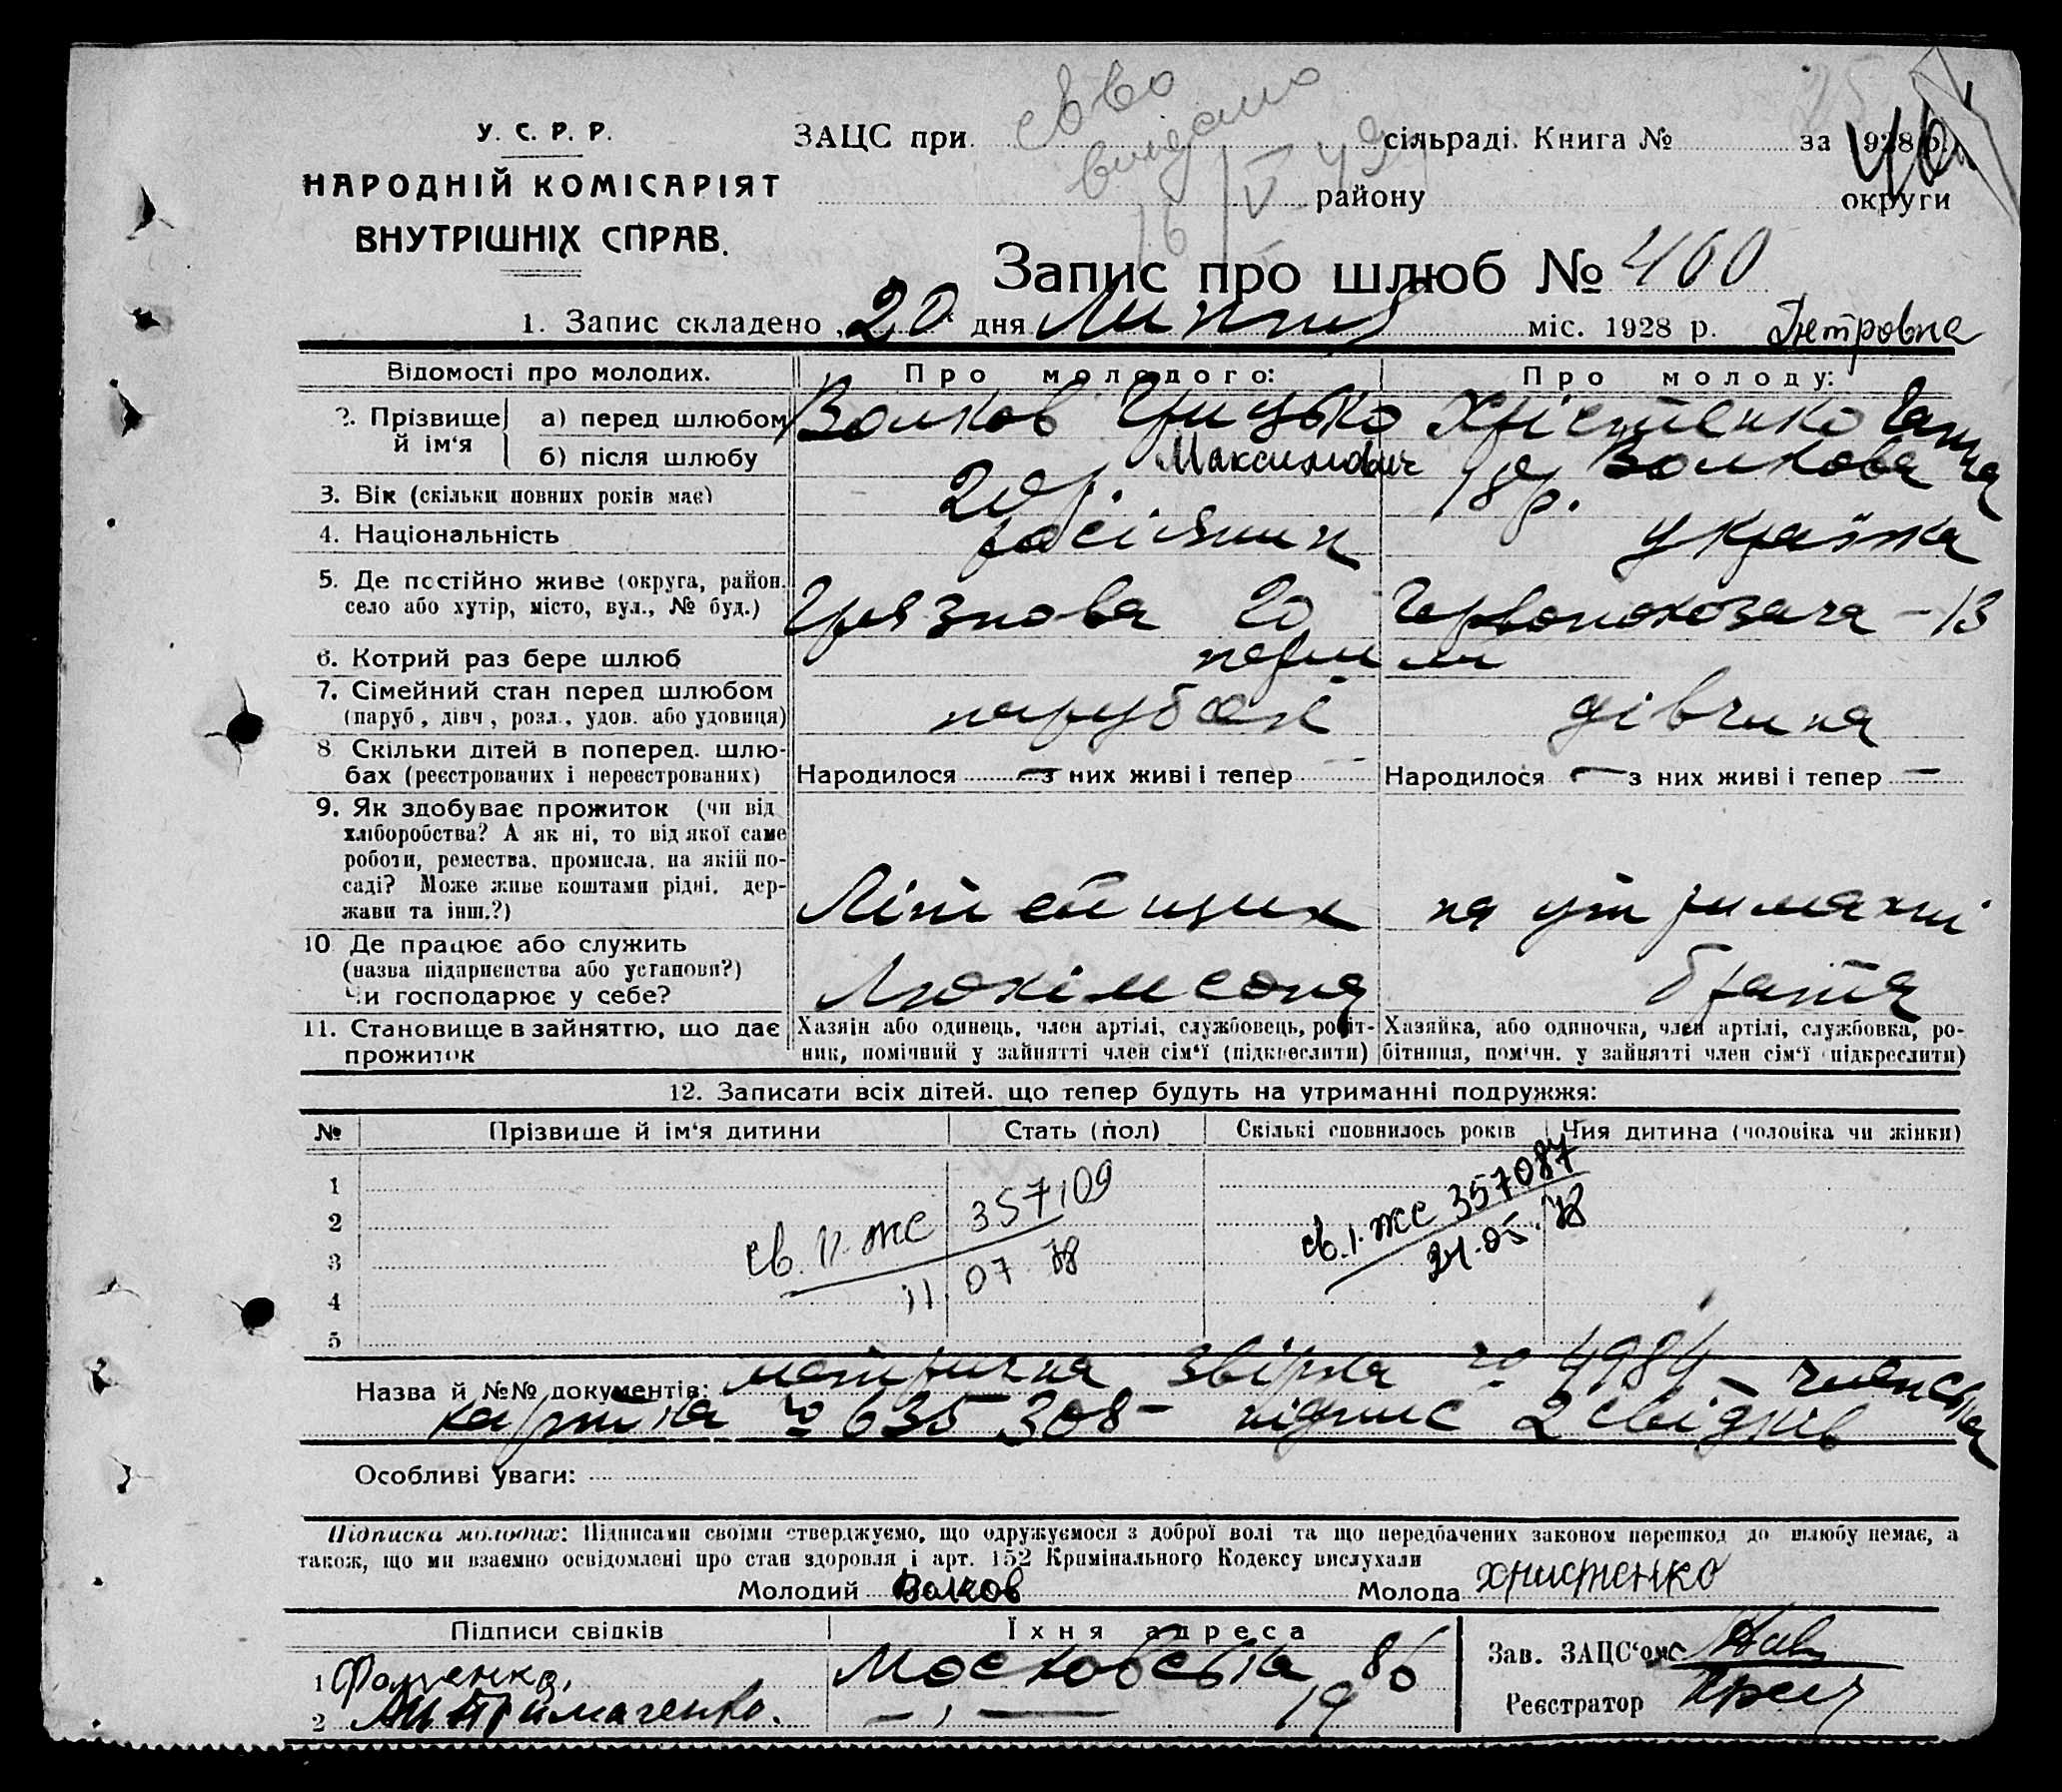 У. С. Р. Р.
НАРОДНІЙ КОМІСАРІЯТ
ВНУТРІШНІХ СПРАВ.
ЗАЦС при сільраді. Книга № за 1928 р.
району округи
св во
видано
16/V 49
46
Запис про шлюб № 460
1. Запис складено „20 дня Липня міс. 1928 р. Петровна
Відомості про молодих. Про молодого: Про молоду:
2. Прізвище й ім'я а) перед шлюбом Волков Грицько Хрістенко Ганна
б) після шлюбу Максимович Волкова
3. Вік (скільки повних років має) 20 р. 18 р.
4. Національність росіянин українка
5. Де постійно живе (округа, район. село або хутір, місто, вул., № буд.) Грязнова 20 Червонокозача - 13
6. Котрий раз бере шлюб перший
7. Сімейний стан перед шлюбом (паруб., дівч., розл., удов. або удовиця) парубок дівчина
8. Скільки дітей в поперед. шлюбах (реєстрованих і нереєстрованих) Народилося — з них живі і тепер Народилося — з них живі і тепер —
9. Як здобуває прожиток (чи від
хліборобства? А як ні, то від якої саме
роботи, ремества, промисла, на якій по-
саді? Може живе коштами рідні, дер-
жави та інш.?) Літейщик на утриманні
10. Де працює або служить
(назва підприємства або установи?)
Чи господарює у себе? брата
11. Становище в зайняттю, що дає прожиток
Хазяїн або одинець, член артілі, службовець, робіт-
ник, помічний у зайнятті член сім'ї (підкреслити)
Хазяйка, або одиночка, член артілі, службовка, ро-
бітниця, помічн. у зайнятті член сім'ї (підкреслити)
12. Записати всіх дітей. що тепер будуть на утриманні подружжя:
№ Прізвище й ім'я дитини Стать (пол) Скількі сповнилось років Чия дитина (чоловіка чи жінки)
1
2
3
4
5
св. II-ЖС 357109
11 07 78
св. I-ЖС 357087
24.05.78
Назва й №№ документів: метрична звірка № 4984 — членська
картка № 635308 — підпис 2 свідків
Особливі уваги:
Підписки молодих: Підписами своїми стверджуємо, що одружуємося з доброї волі та що передбачених законом перешкод до шлюбу немає, а
також, що ми взаємно освідомлені про стан здоровля і арт. 152 Кримінального Кодексу вислухали
Молодий Волков Молода Христенко
Підписи свідків Їхня адреса
1 Фоменко, Московська 86
2 — „ — 19
Зав. ЗАЦС'ом
Реєстратор